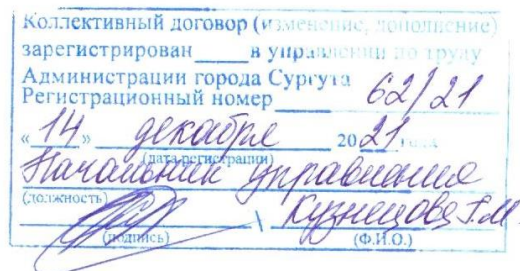 Коллективный договор (изменение, дополнение)
зарегистрирован ____ в управлении по труду
Администрации города Сургута
Регистрационный номер 62/21
«14» декабря 2021 года
(дата регистрации)
Начальник управления
(должность)
Кузнецова Г.М.
(подпись) (Ф.И.О.)